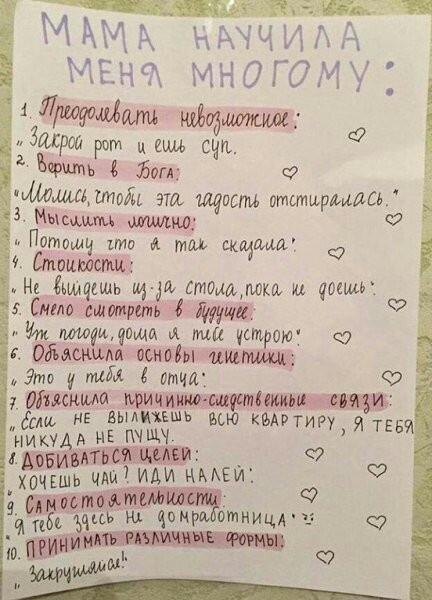 МАМА НАУЧИЛА
МЕНЯ МНОГОМУ:
1. Преодолевать невозможное:
„Закрой рот и ешь суп.
2. Верить в Бога:
„Молись, чтобы эта гадость отстиралась."
3. Мыслить логично:
„Потому что я так сказала".
4. Стойкости:
„Не выйдешь из-за стола, пока не доешь".
5. Смело смотреть в будущее:
„Уж погоди, дома я тебе устрою"
6. Объяснила основы генетики:
„Это у тебя в отца".
7. Объяснила причинно-следственные связи:
„Если НЕ ВЫЛИЖЕШЬ ВСЮ КВАРТИРУ, Я ТЕБЯ
НИКУДА НЕ ПУЩУ.
8. ДОБИВАТЬСЯ ЦЕЛЕЙ:
„ХОЧЕШЬ ЧАЙ? ИДИ НАЛЕЙ".
9. Самостоятельности:
„Я тебе здесь не домработница"
10. ПРИНИМАТЬ РАЗЛИЧНЫЕ ФОРМЫ:
„Закругляйся!"